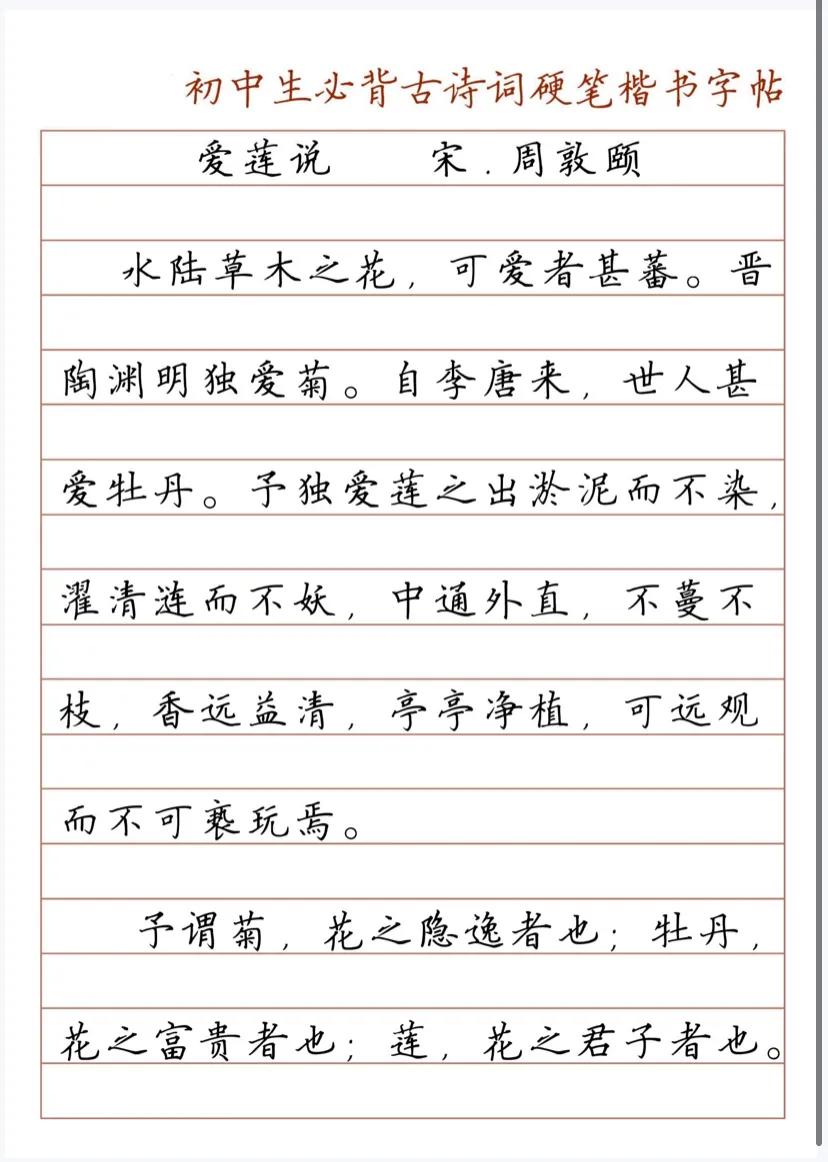 初中生必背古诗词硬笔楷书字帖
爱莲说 宋.周敦颐
水陆草木之花，可爱者甚蕃。晋
陶渊明独爱菊。自李唐来，世人甚
爱牡丹。予独爱莲之出淤泥而不染，
濯清涟而不妖，中通外直，不蔓不
枝，香远益清，亭亭净植，可远观
而不可亵玩焉。
予谓菊，花之隐逸者也；牡丹，
花之富贵者也；莲，花之君子者也。